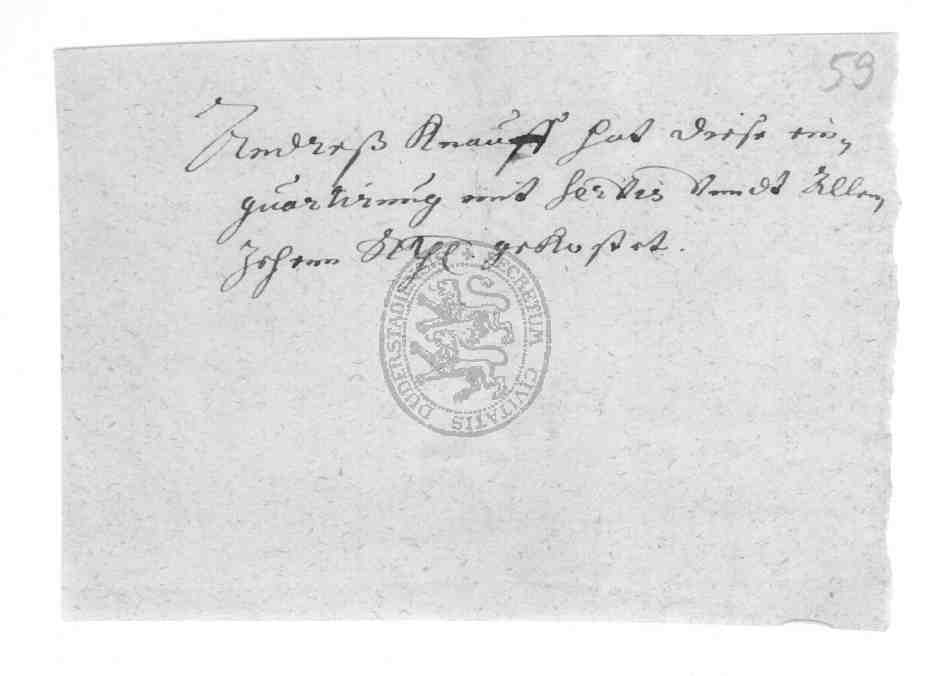 59
Andreß Knauff hat diese ein,
quartirung mit servis vndt Allen
Zehenn Rthl gekostet.
SECRETUM CIVITATIS DUDERSTADIENSIS